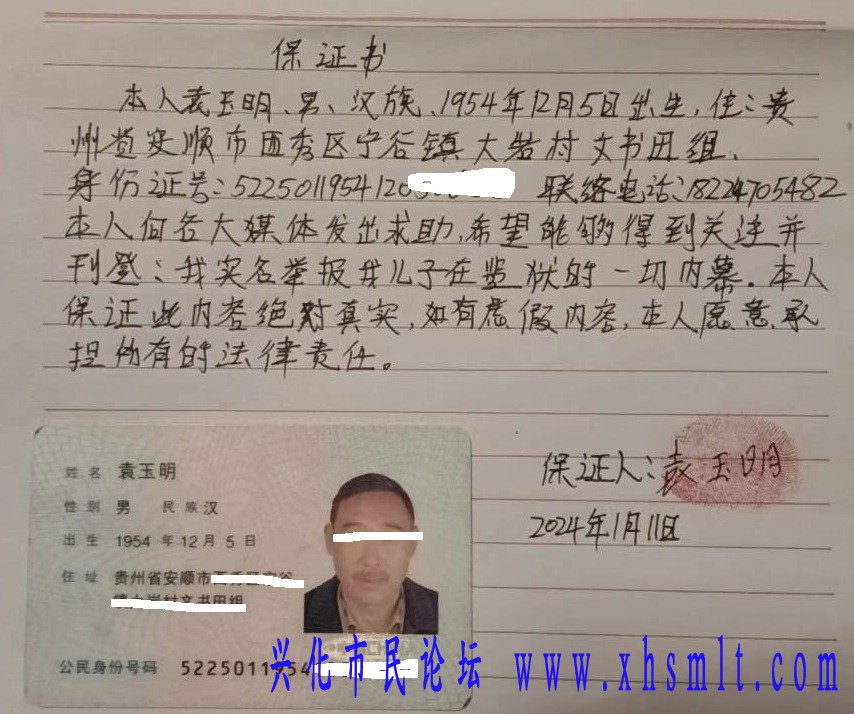 保证书
本人袁玉明、男、汉族、1954年12月5日出生，住：贵
州省安顺市西秀区宁谷镇大岩村文书田组、
身份证号：522501195412 联络电话：18224705482
本人向各大媒体发出求助，希望能够得到关注并
刊登：我实名举报我儿子在监狱的一切内幕。本人
保证此内容绝对真实，如有虚假内容，本人愿意承
担所有的法律责任。
保证人：袁玉明
2024年1月11日
姓名 袁玉明
性别 男 民族 汉
出生 1954 年 12 月 5 日
住址 贵州省安顺市
公民身份号码 5225011954
兴化市民论坛 www.xhsmlt.com